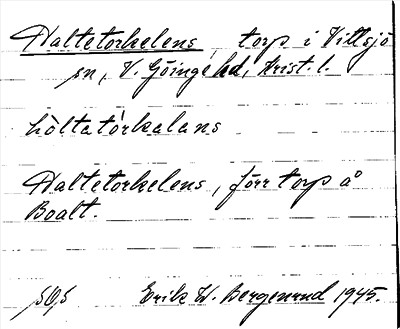 Haltetorkelens, torp i Vittsjö
sn, V. Göinge hd, Krist. l.
hòltatòrkalans
Haltetorkelens, förr torp å
Boalt.
Erik W. Bergenrud 1945.